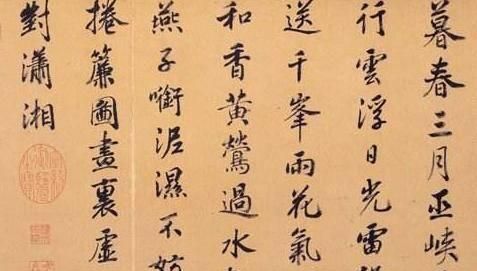 暮春三月巫峽
行雲浮日光雷
送千峯雨花氣
和香黄鶯過水
燕子啣泥濕不妨
捲簾圖畫裏虛
對瀟湘